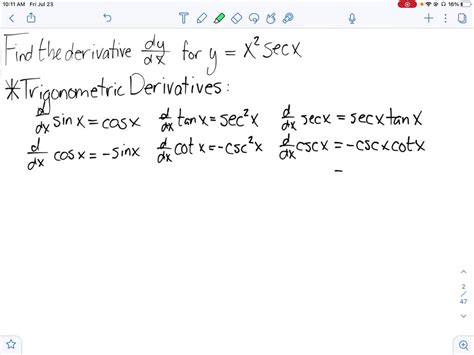 10:11 AM Fri Jul 23
16%
Find the derivative dy/dx for y = x² sec x
*Trigonometric Derivatives:
d/dx sin x = cos x d/dx tan x = sec² x d/dx sec x = sec x tan x
d/dx cos x = -sin x d/dx cot x = -csc² x d/dx csc x = -csc x cot x
2
/
47